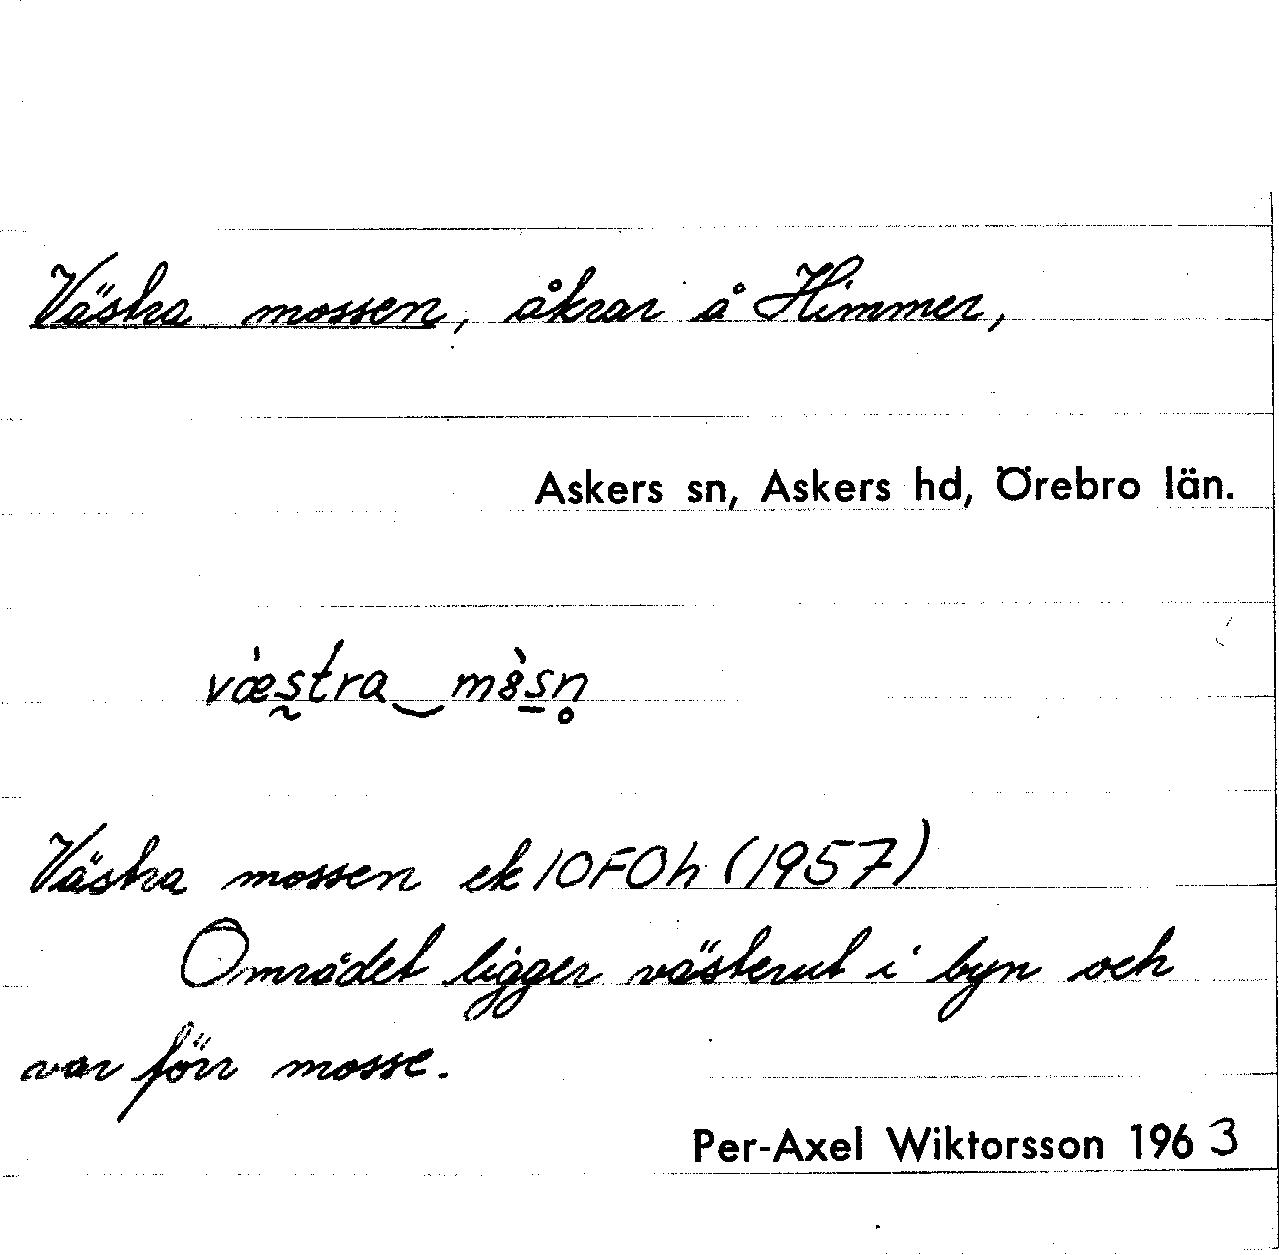 Västra mossen, åkrar å Himmer,
Askers sn, Askers hd, Örebro län.
væ̀s̰tra‿m8̀s̲n̥
Västra mossen ek 10F0h (1957)
Området ligger västerut i byn och
var förr mosse.
Per-Axel Wiktorsson 1963